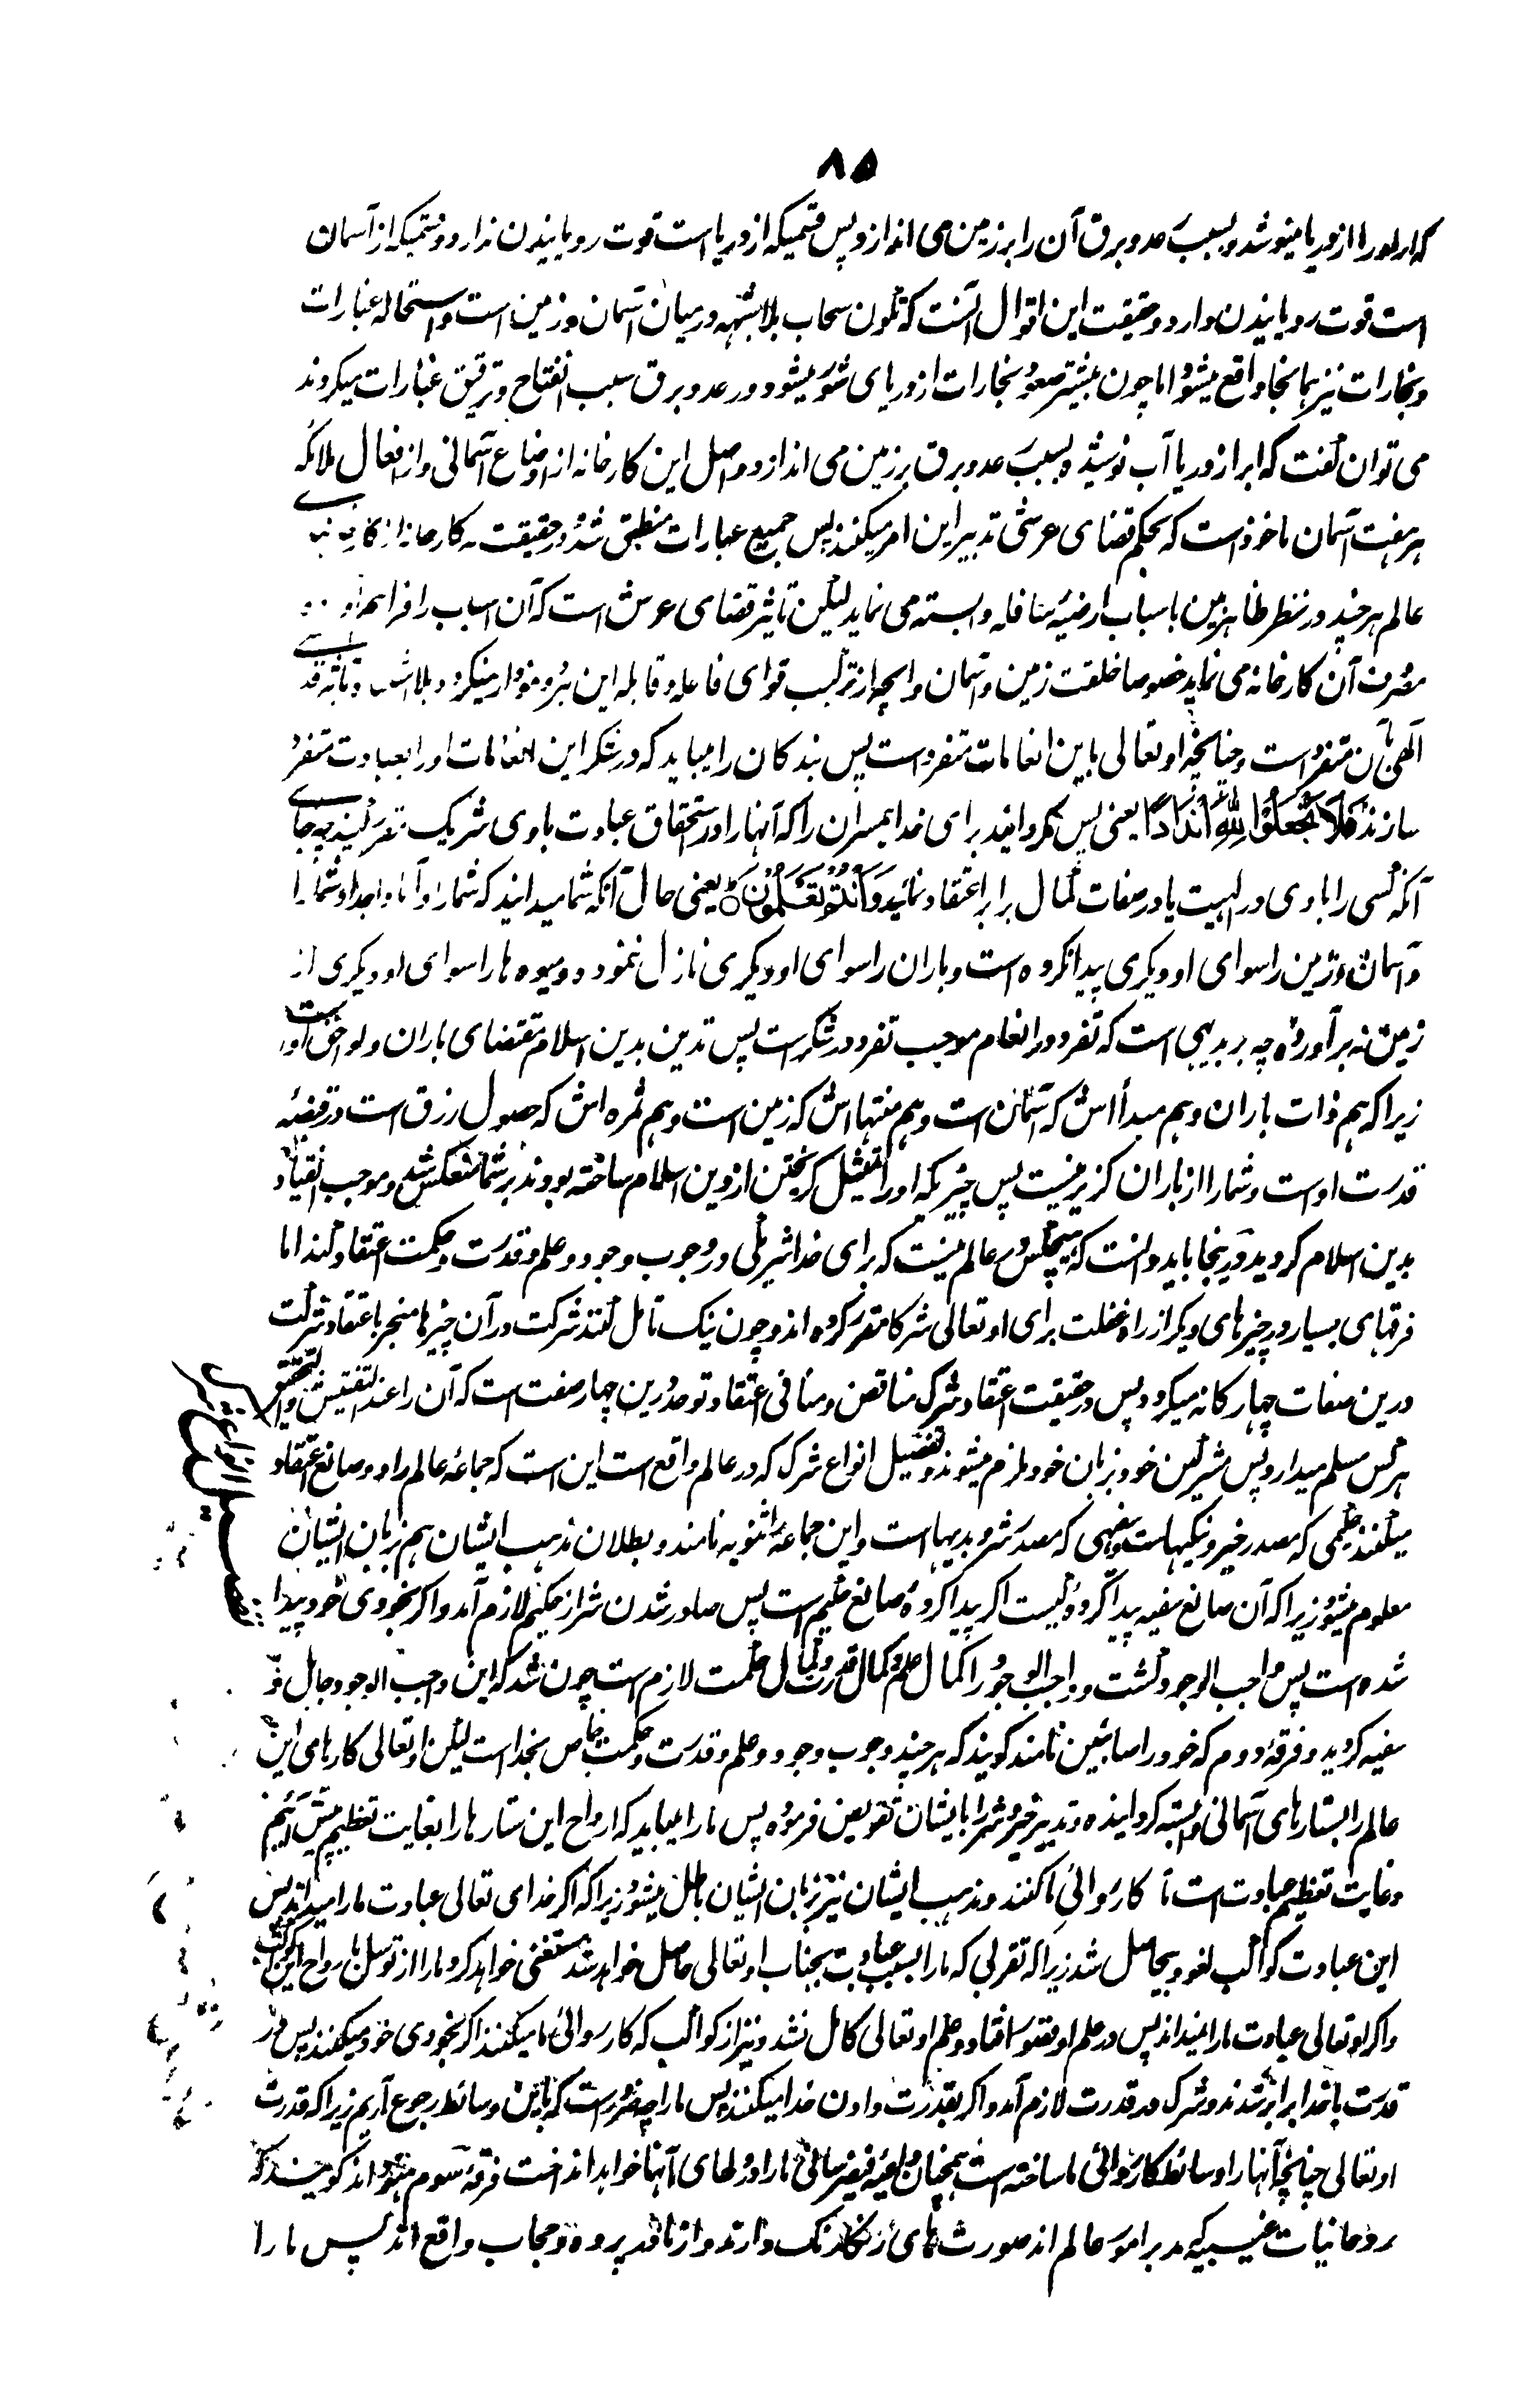 ۸۵
که ابر او را از دریا مینوشد و بسبب رعد و برق آن را بر زمین می اندازد پس قسمیکه از دریا است قوت رویانیدن ندارد و قسمیکه از آسمان
است قوت رویانیدن دارد و حقیقت این اقوال آنست که تکون سحاب بلا شبهه در میان آسمان و زمین است و استحاله غبارات
و بخارات نیز همانجا واقع میشود اما چون بیشتر صعود بخارات از دریای شور میشود و رعد و برق سبب انفتاح و ترقیق غبارات میگردند
می توان گفت که ابر از دریا آب نوشیده بسبب رعد و برق بر زمین می اندازد و اصل این کارخانه از اوضاع آسمانی و از افعال ملائکه
هر هفت آسمان ماخوذ است که بحکم قضای عرشی تدبیر این امر میکنند پس جمیع عبارات منطبق شد و در حقیقت هر کارخانه از کارخانه
عالم هر چند در نظر ظاهر بین باسباب ارضیه سافله وابسته می نماید لیکن تاثیر قضای عرش است که آن اسباب را فراهم
مصرف آن کارخانه می نماید خصوصا خلقت زمین و آسمان و آنچه از ترکیب قوای فاعله و قابله این هر دو نمودار میگردد بلا اشتباه
الهی بآن متفرد است و چنانچه او تعالی باین انعامات متفرد است پس بندگان را میباید که در شکر این انعامات او را بعبادت متفرد
سازند فَلَا تَجْعَلُوا لِلّٰهِ أَنْدَادًا یعنی پس مگردانید برای خدا همسران را که آنها را در استحقاق عبادت باوی شریک مقرر کنید چه جای
آنکه کسی را باوی در الهیت یا در صفات کمال برابر اعتقاد نمائید وَأَنْتُمْ تَعْلَمُونَ یعنی حال آنکه شما میدانید که شما را و آبا و اجداد شما را
و آسمان و زمین را سوای او دیگری پیدا نکرده است و باران را سوای او دیگری نازل ننموده و میوه ها را سوای او دیگری از
زمین نه برآورده چه بر بدیهی است که تفرد در انعام موجب تفرد در شکر است پس تدین بدین اسلام مقتضای باران و لواحق او است
زیرا که هم ذات باران و هم مبدأ اش که آسمان است و هم منتها اش که زمین است و هم ثمره اش که حصول رزق است در قبضه
قدرت او است و شما را از باران گزیر نیست پس چیزیکه او را تمثیل گریختن از دین اسلام ساخته بودند بر شما منعکس شد و موجب انقیاد
بدین اسلام گردید و درینجا باید دانست که هیچکس در عالم نیست که برای خدا شریکی در وجوب وجود و علم و قدرت و حکمت اعتقاد کند اما
فرقهای بسیار در چیزهای دیگر از راه غفلت برای او تعالی شرکا مقرر کرده اند و چون نیک تامل کنند شرکت در آن چیزها منجر باعتقاد شرکت
درین صفات چهارگانه میگردد پس در حقیقت اعتقاد شرک مناقض و منافی اعتقاد توحد درین چهار صفت است که آن را عند التفتیش و التحقیق
هر کس مسلم میدارد پس مشرکین خود بزبان خود ملزم میشوند و تفصیل انواع شرک که در عالم واقع است این است که جماعه عالم را دو صانع اعتقاد
میکنند حکیمی که مصدر خیر و نیکیهاست و سفیهی که مصدر شر و بدیهاست و این جماعه را ثنویه نامند و بطلان مذهب ایشان هم بزبان ایشان
معلوم میشود زیرا که آن صانع سفیه پیدا کرده کیست اگر پیدا کرده صانع حکیم است پس صادر شدن شر از حکیم لازم آمد و اگر بخودی خود پیدا
شده است پس واجب الوجود گشت و واجب الوجود را کمال علم و کمال قدرت و کمال حکمت لازم است چون شد که این واجب الوجود جاهل و
سفیه گردید و فرقه دوم که خود را صابئین نامند گویند که هر چند وجوب وجود و علم و قدرت و حکمت خاص بخدا است لیکن او تعالی کارهای این
عالم را بستارهای آسمانی وابسته گردانیده و تدبیر خیر و شر را بایشان تفویض فرموده پس ما را میباید که ارواح این ستارها را بغایت تعظیم پیش آئیم
و غایت تعظیم عبادت است تا کارروائی ما کنند و مذهب ایشان نیز بزبان ایشان باطل میشود زیرا که اگر خدای تعالی عبادت ما را میداند پس
این عبادت کواکب لغو و بیحاصل شد زیرا که تقربی که ما را بسبب عبادت بجناب او تعالی حاصل خواهد شد مستغنی خواهد کرد ما را از توسل بارواح این کواکب
و اگر او تعالی عبادت ما را نمیداند پس در علم او نقصور افتاد و علم او تعالی کامل نشد و نیز از کواکب که کارروائی ما میکنند اگر بخودی خود میکنند پس در
قدرت با خدا برابر شدند و شرک در قدرت لازم آمد و اگر بقدرت دادن خدا میکنند پس ما را چه ضرور است که باین وسائط رجوع آریم زیرا که قدرت
او تعالی چنانچه آنها را وسائط کارروائی ما ساخته است همچنان داعیه فیض رسانی ما را در دلهای آنها خواهد انداخت فرقه سوم هنود اند گویند که
روحانیات غیبیه مدبر امور عالم اند صورت های رنگارنگ دارند و از ما در پرده و حجاب واقع اند پس ما را